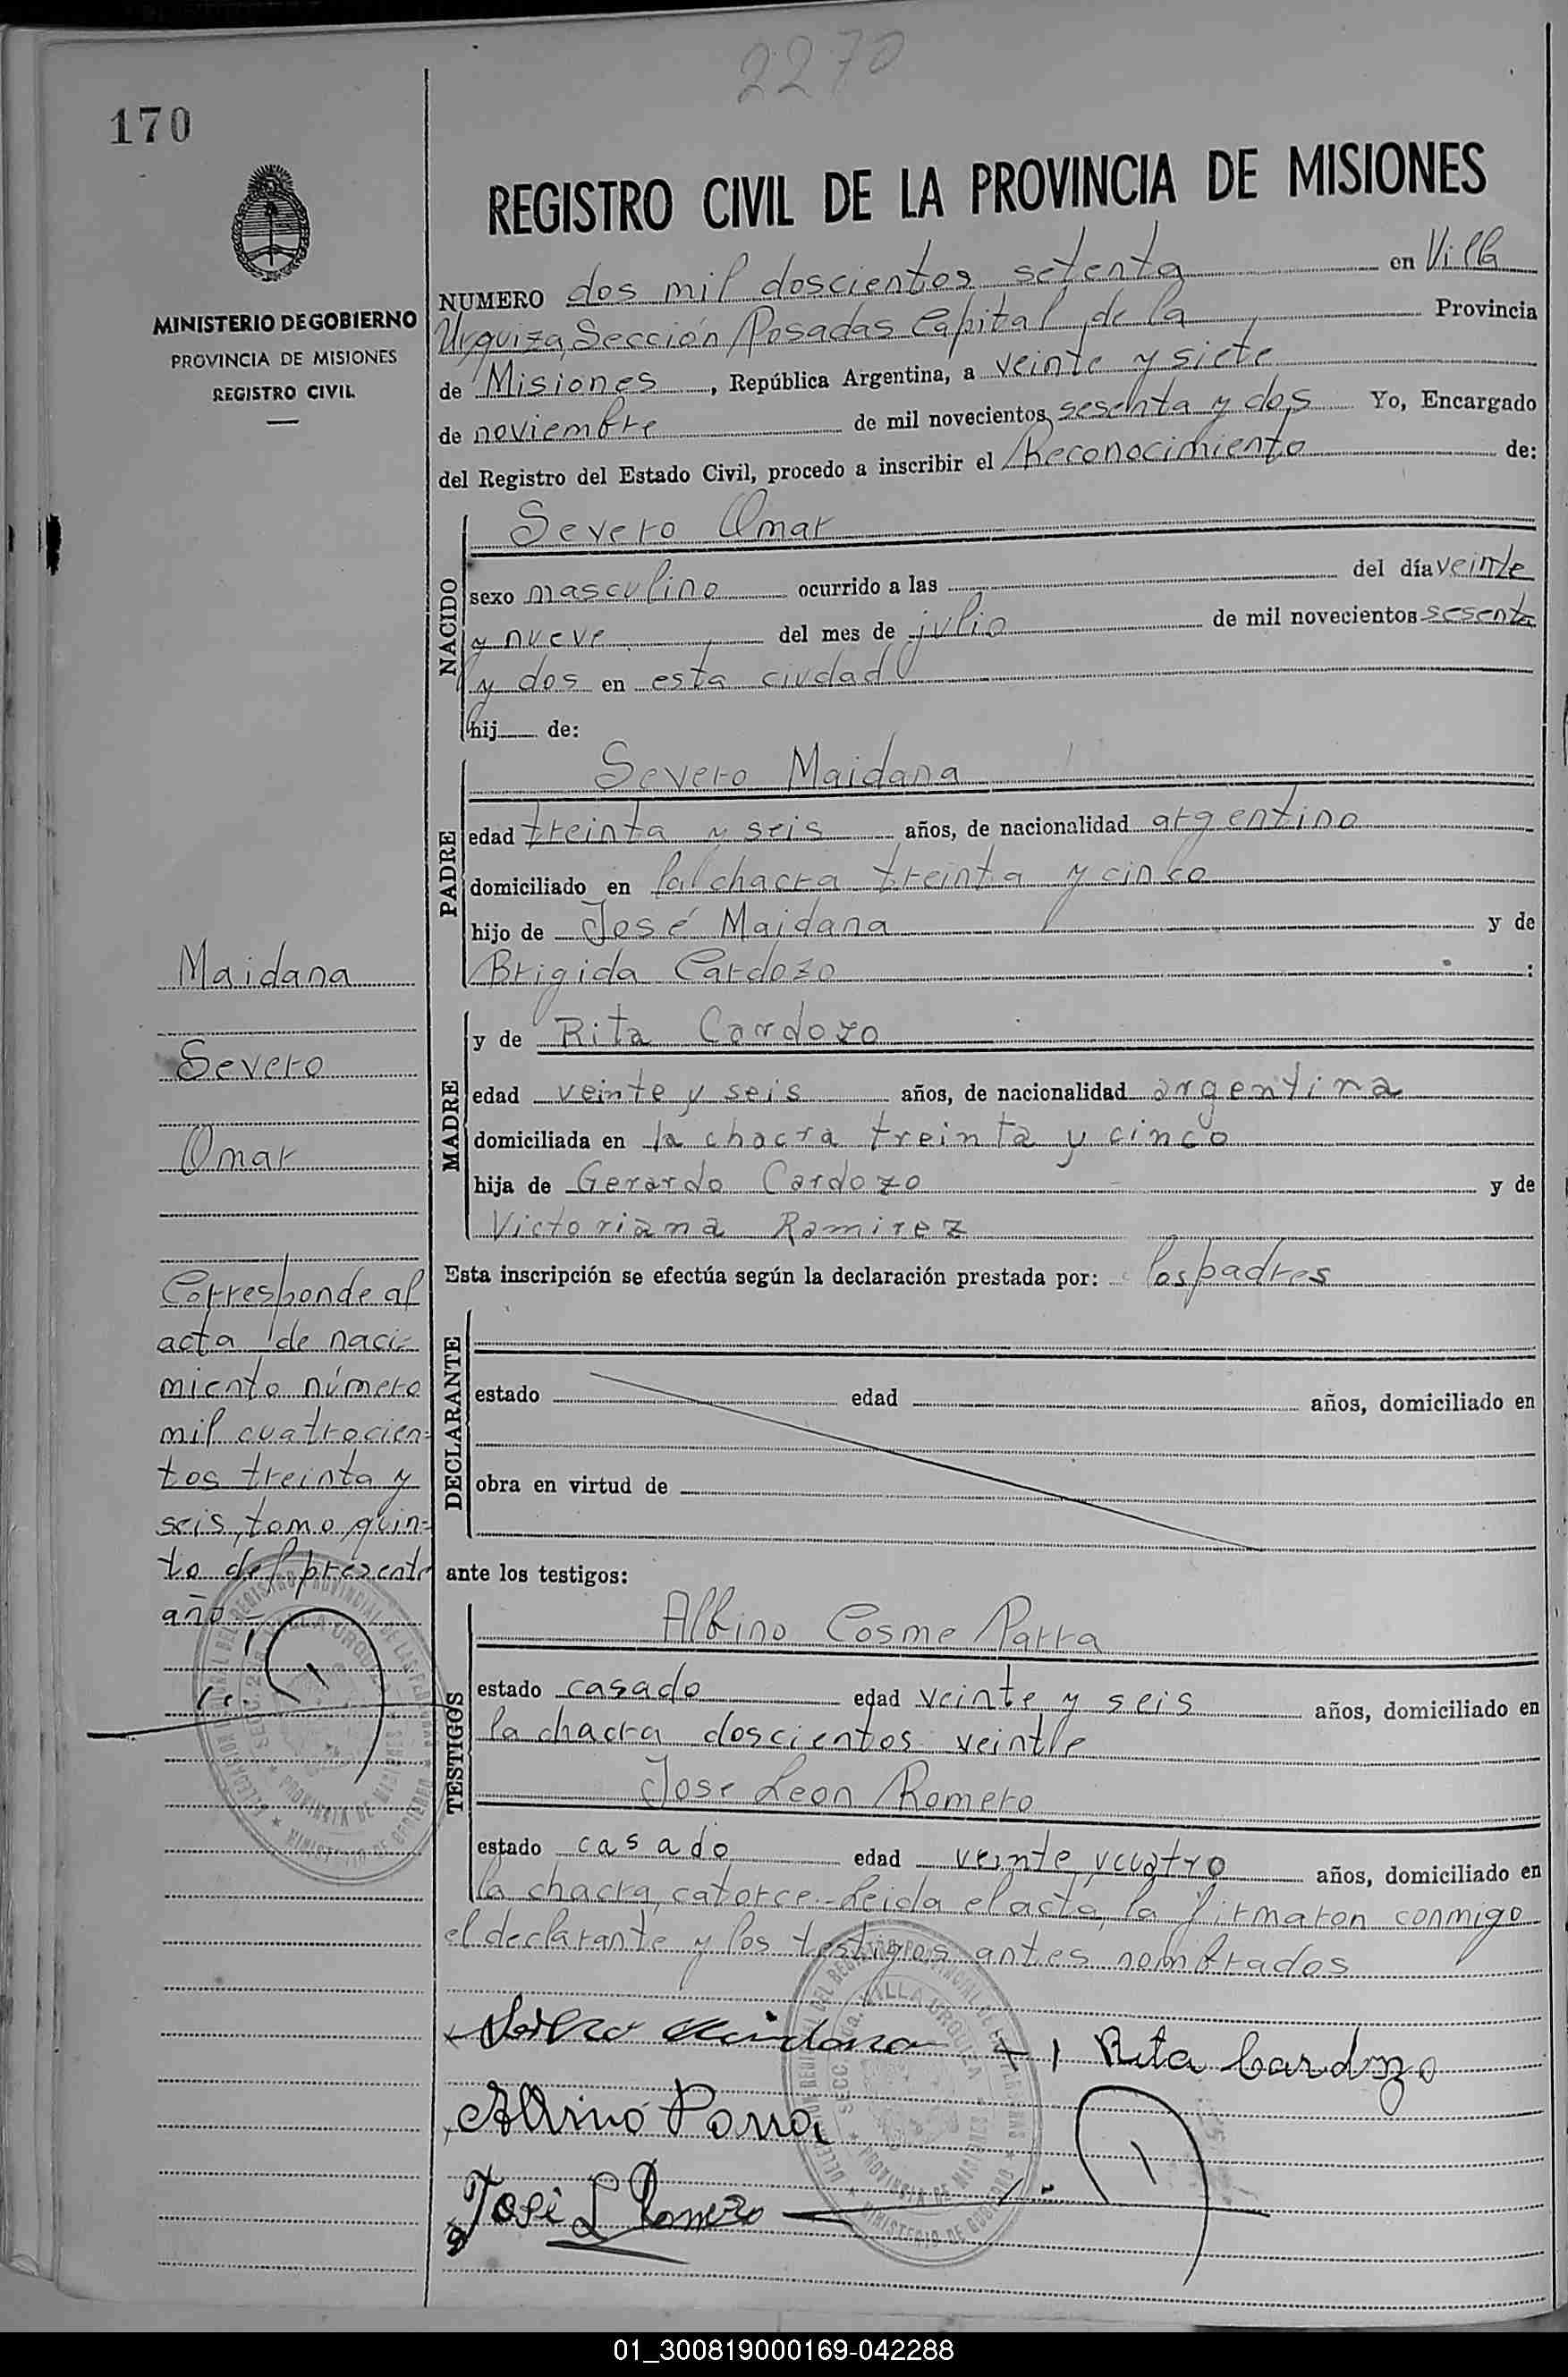 2270
170
REGISTRO CIVIL DE LA PROVINCIA DE MISIONES
MINISTERIO DE GOBIERNO
PROVINCIA DE MISIONES
REGISTRO CIVIL
NUMERO dos mil doscientos setenta en Villa
Urquiza, Sección Posadas Capital de la Provincia
de Misiones, República Argentina, a veinte y siete
de noviembre de mil novecientos sesenta y dos Yo, Encargado
del Registro del Estado Civil, procedo a inscribir el Reconocimiento de:
NACIDO
Severo Omar
sexo masculino ocurrido a las del día veinte
y nueve del mes de julio de mil novecientos sesenta
y dos en esta ciudad
hij de:
PADRE
Severo Maidana
edad treinta y seis años, de nacionalidad argentino
domiciliado en la chacra treinta y cinco
hijo de José Maidana y de
Brigida Cardozo :
MADRE
y de Rita Cardozo
edad veinte y seis años, de nacionalidad argentina
domiciliada en la chacra treinta y cinco
hija de Gerardo Cardozo y de
Victoriana Ramirez
Esta inscripción se efectúa según la declaración prestada por: los padres
DECLARANTE
estado edad años, domiciliado en
obra en virtud de
ante los testigos:
TESTIGOS
Albino Cosme Parra
estado casado edad veinte y seis años, domiciliado en
la chacra doscientos veinte
Jose Leon Romero
estado casado edad veinte y cuatro años, domiciliado en
la chacra catorce.- Leida el acta, la firmaron conmigo
el declarante y los testigos antes nombrados
Severo Maidana + Rita Cardozo
Albino Parra
José L Romero
Maidana
Severo
Omar
Corresponde al
acta de naci-
miento número
mil cuatrocien-
tos treinta y
seis, tomo quin-
to del presente
año.-
SECC. 2da. VILLA URQUIZA
PROVINCIA DE MISIONES
MINISTERIO DE GOBIERNO
01_300819000169-042288